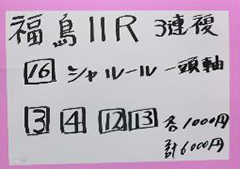 福島11R 3連複
16 シャルール 一頭軸
3 4 12 13 各1000円
計6000円